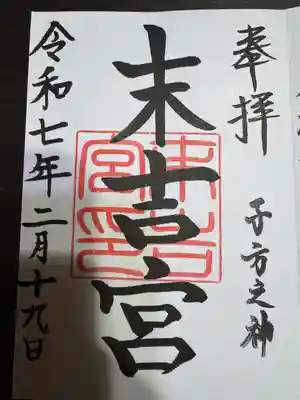 奉拝
子方之神
末吉宮
末吉宮印
令和七年二月十九日